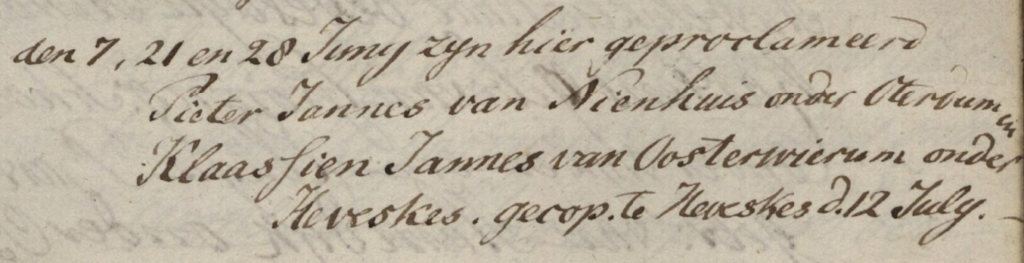 den 7, 21 en 28 Juny zyn hier geproclameerd
Pieter Jannes van Nienhuis onder Oterdum en
Klaassien Jannes van Oosterwierum onder
Heveskes. gecop. te Heveskes d. 12 July. —